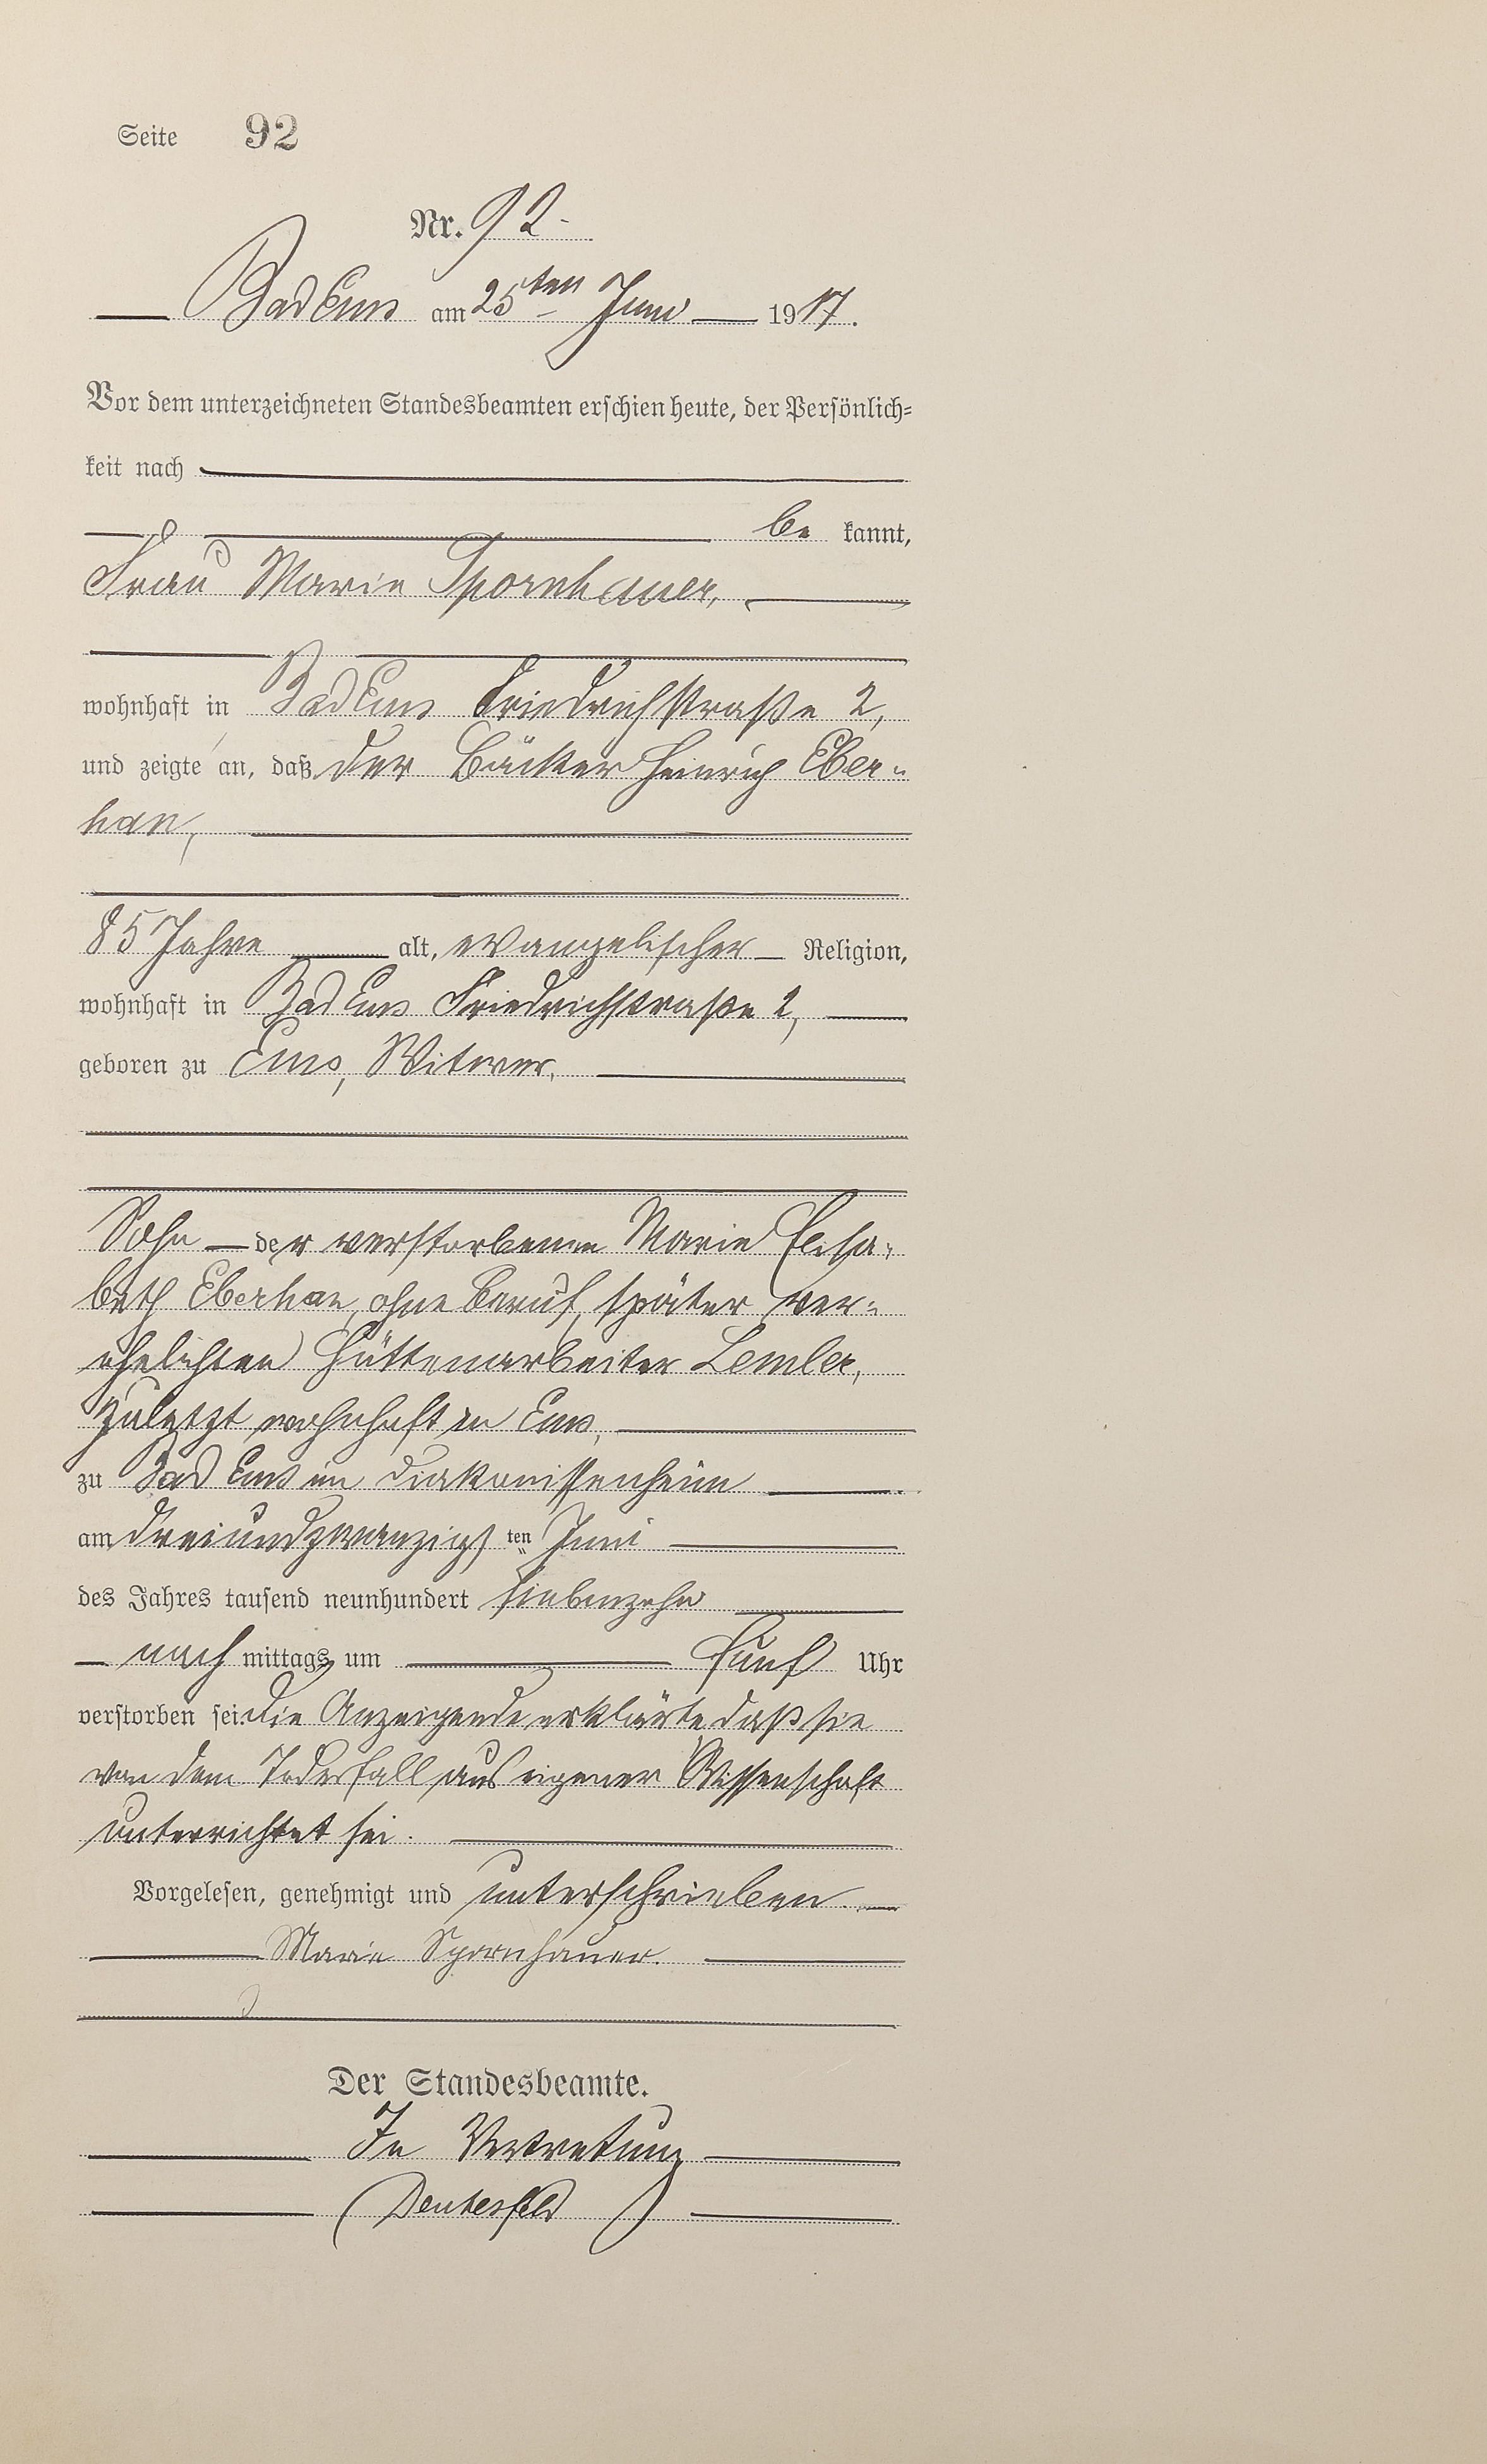 Seite 92
Nr. 92.
Bad Ems am 25ten Juni 1917.
Vor dem unterzeichneten Standesbeamten erschien heute, der Persönlich=
keit nach
be kannt,
Frau Marie Spornhauer,
wohnhaft in Bad Ems Friedrichstraße 2,
und zeigte an, daß der Bäcker Heinrich Eber=
han,
85 Jahre alt, evangelischer Religion,
wohnhaft in Bad Ems Friedrichstraße 2,
geboren zu Ems, Witwer,
Sohn der verstorbenen Marie Elisa=
beth Eberhan, ohne Beruf, später ver=
ehelichten Hüttenarbeiter Lemler,
zuletzt wohnhaft in Ems,
zu Bad Ems im Diakonissenheim
am dreiundzwanzigsten Juni
des Jahres tausend neunhundert siebenzehn
nach mittags um fünf Uhr
verstorben sei. Die Anzeigende erklärte daß sie
von dem Todesfall aus eigener Wissenschaft
unterrichtet sei.
Vorgelesen, genehmigt und unterschrieben.
Marie Spornhauer.
Der Standesbeamte.
In Vertretung
(Deutesfeld)